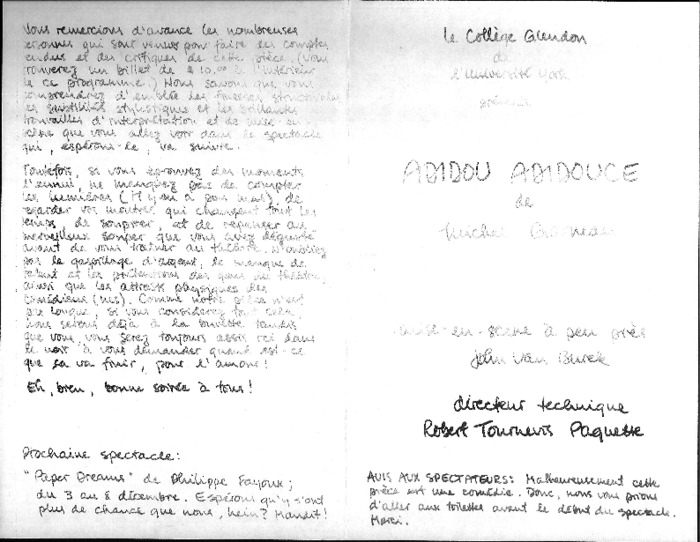 Nous remercions d'avance les nombreuses
personnes qui sont venues pour faire des comptes
rendus et des critiques de cette pièce. (Vous
trouverez un billet de $10.00 à l'intérieur
de ce programme.) Nous savons que vous
comprendrez d'emblée les
stylistiques et les brillantes
trouvailles d'interprétation et de mise-en-
scène que vous allez voir dans le spectacle
qui, espérons-le, va suivre.
Toutefois, si vous éprouvez des moments
d'ennui, ne manquez pas de compter
les lumières (Il y en a pas mal), de
regarder vos montres, qui changent tout les
temps, de soupirer, et de repenser au
merveilleux souper que vous avez dégusté
avant de vous traîner au théâtre. N'oubliez
pas le gaspillage d'argent, le manque de
talent et les prétentions des gens de théâtre
ainsi que les attraits physiques des
comédiens (nes). Comme notre pièce n'est
pas longue, si vous considérez tout cela,
nous serons déjà à la buvette tandis
que vous, vous serez toujours assis ici dans
le noir à vous demander quand est-ce
que ça va finir, pour l'amour!
Eh, bien, bonne soirée à tous!
Prochaine spectacle:
"Paper Dreams" de Philippe Fayoux;
du 3 au 8 décembre. Espérons qu'y s'ont
plus de chance que nous, hein? Maudit!
le Collège Glendon
de
l'université York
présente
ABIDOU ABIDOUCE
de
Michel Garneau
mise-en-scène à peu près
John Van Burek
directeur technique
Robert Tournevis Paquette
AVIS AUX SPECTATEURS: Malheureusement cette
pièce est une comédie. Donc, nous vous prions
d'aller aux toilettes avant le début du spectacle.
Merci.